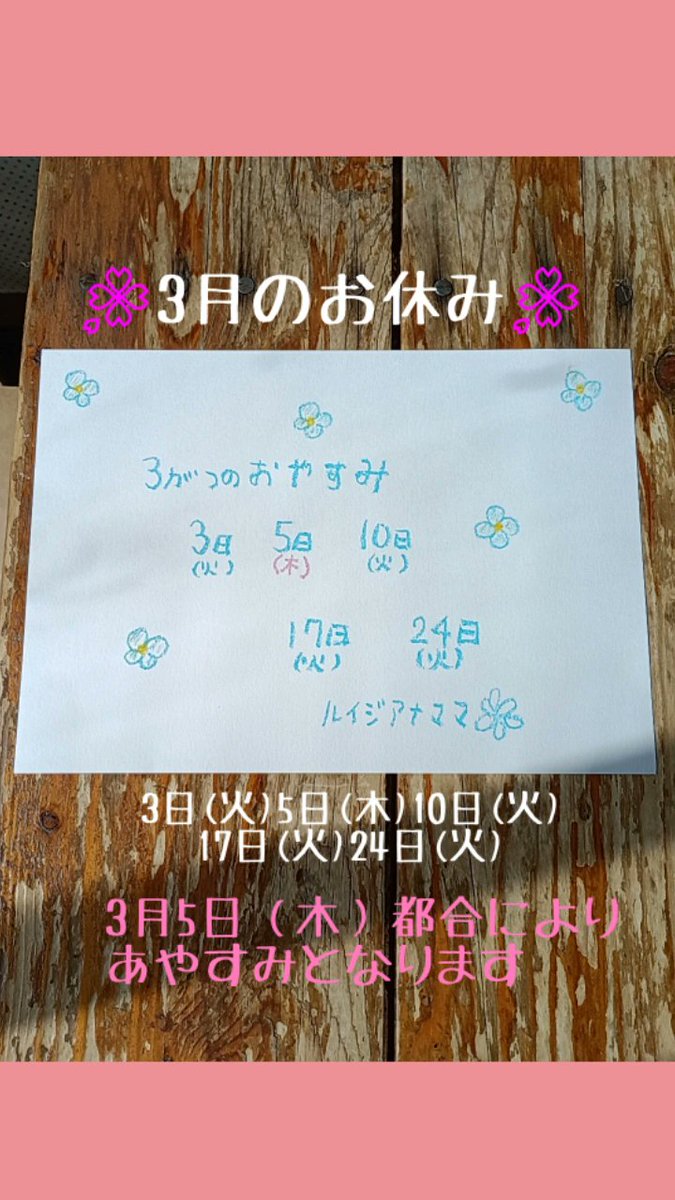 3月のお休み
3がつのおやすみ
3日 5日 10日
(火) (木) (火)
17日 24日
(火) (火)
ルイジアナママ
3日(火)5日(木)10日(火)
17日(火)24日(火)
3月5日(木)都合により
あやすみとなります